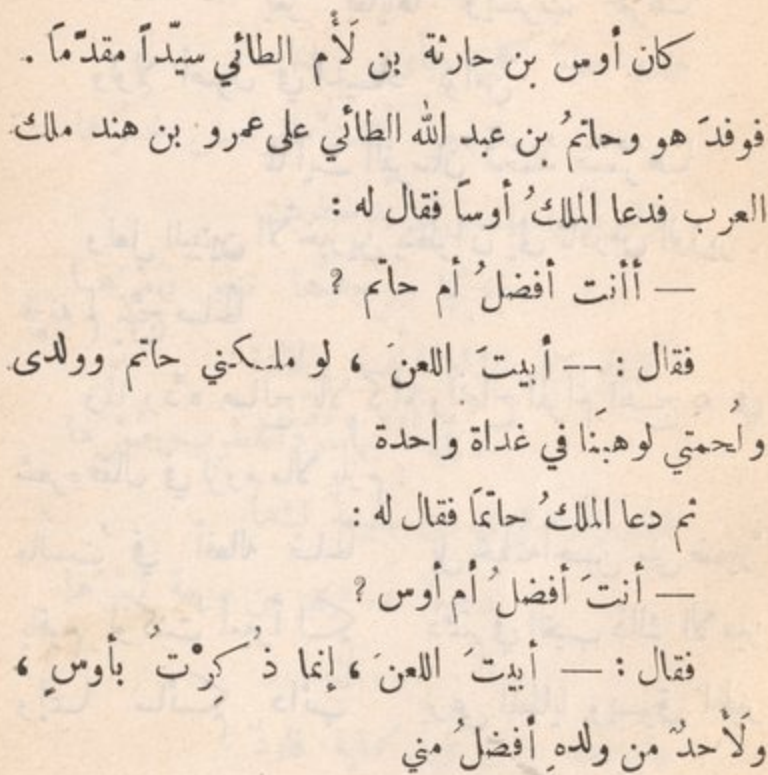 كان أوس بن حارثة بن لَأْم الطائي سيّداً مقدّماً .
فوفدَ هو وحاتمُ بن عبد الله الطائي على عمرو بن هند ملك
العرب فدعا الملكُ أوساً فقال له :
— أأنت أفضلُ أم حاتم ?
فقال : — أبيتَ اللعنَ ، لو ملكني حاتم وولدى
ولُحمتي لوهبَنا في غداة واحدة
ثم دعا الملكُ حاتماً فقال له :
— أنتَ أفضلُ أم أوس ?
فقال : — أبيتَ اللعنَ ، إنما ذُكِرْتُ بأوسٍ ،
ولَأحدُ من ولدهِ أفضلُ مني